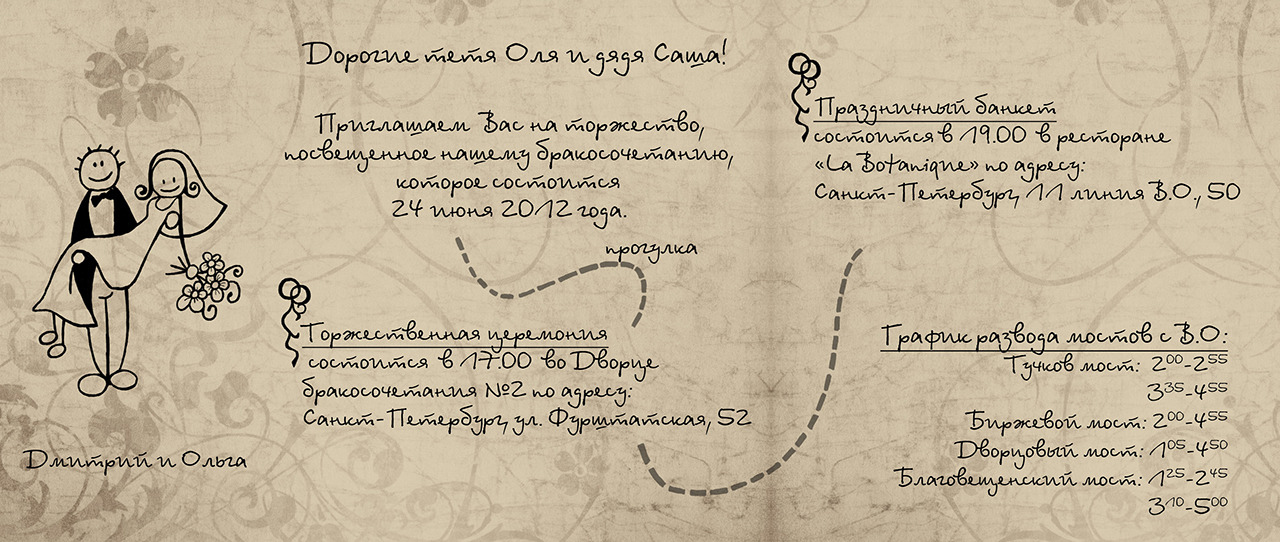 Дорогие тетя Оля и дядя Саша!
Приглашаем Вас на торжество,
посвещенное нашему бракосочетанию,
которое состоится
24 июня 2012 года.
прогулка
Торжественная церемония
состоится в 17.00 во Дворце
бракосочетания №2 по адресу:
Санкт-Петербург, ул. Фурштатская, 52
Дмитрий и Ольга
Праздничный банкет
состоится в 19.00 в ресторане
«La Botanique» по адресу:
Санкт-Петербург, 11 линия В.О., 50
График развода мостов с В.О:
Тучков мост: 2⁰⁰-2⁵⁵
3³⁵-4⁵⁵
Биржевой мост: 2⁰⁰-4⁵⁵
Дворцовый мост: 1⁰⁵-4⁵⁰
Благовещенский мост: 1²⁵-2⁴⁵
3¹⁰-5⁰⁰